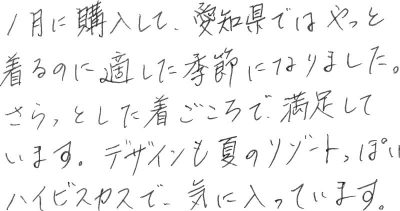 1月に購入して、愛知県ではやっと
着るのに適した季節になりました。
さらっとした着ごこちで満足して
います。デザインも夏のリゾートっぽい
ハイビスカスで気に入っています。